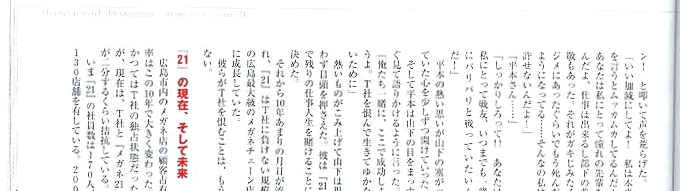 ン！　と叩いて声を荒らげた。
「いい加減にしてよ！　私は本
を言うとムッカムカしてるんだ
あなたは私にとって憧れの先輩
んだよ、仕事は出来るし部下の
敬もあった。それがガキじみた
ジメにあったぐらいでもう死んだ
ようになってる……そんなの私
許せないんだよ！」
「平本さん……」
「しっかりしろって!!　あなたは
私にとって戦友、いつまでも一緒
にバリバリと戦っていたいん
だ！」
　平本の熱い思いが山下の塞が
ていた心を少しずつ開けていった。
　そして平本は山下の目をまっす
ぐ見て語りかけるように言った。
「俺たち一緒に、ここで成功しよ
うよ。T社を恨んで生きてゆかな
いために」
　熱いものがこみ上げて山下は思
わず目頭を押さえた。彼は『21』
で残りの仕事人生を賭けることに
決めた。
　それから10年あまりの月日が流
れ、『21』はT社に負けない規模
の広島最大級のメガネチェーン店
に成長していた。
　彼らがT社を恨むことは、もう
ない。
『21』の現在、そして未来
　広島市内のメガネ店の顧客占有
率はこの10年で大きく変わった。
かつてはT社の独占状態だった
が、現在は、T社と『メガネ21』
が二分するくらい拮抗している。
　いま『21』の社員数は170人、
130店舗を有している。200